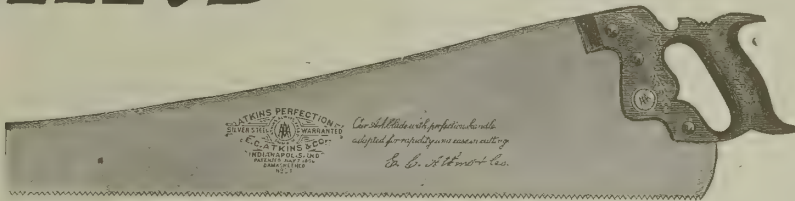 ATKINS PERFECTION
SILVER STEEL AAA WARRANTED
E.C. ATKINS & CO.
INDIANAPOLIS, IND.
PATENTED
DAMASKEENED
NO. 1
Our blade with perfection handle
adapted for rapidity and ease in cutting
E. C. Atkins & Co.